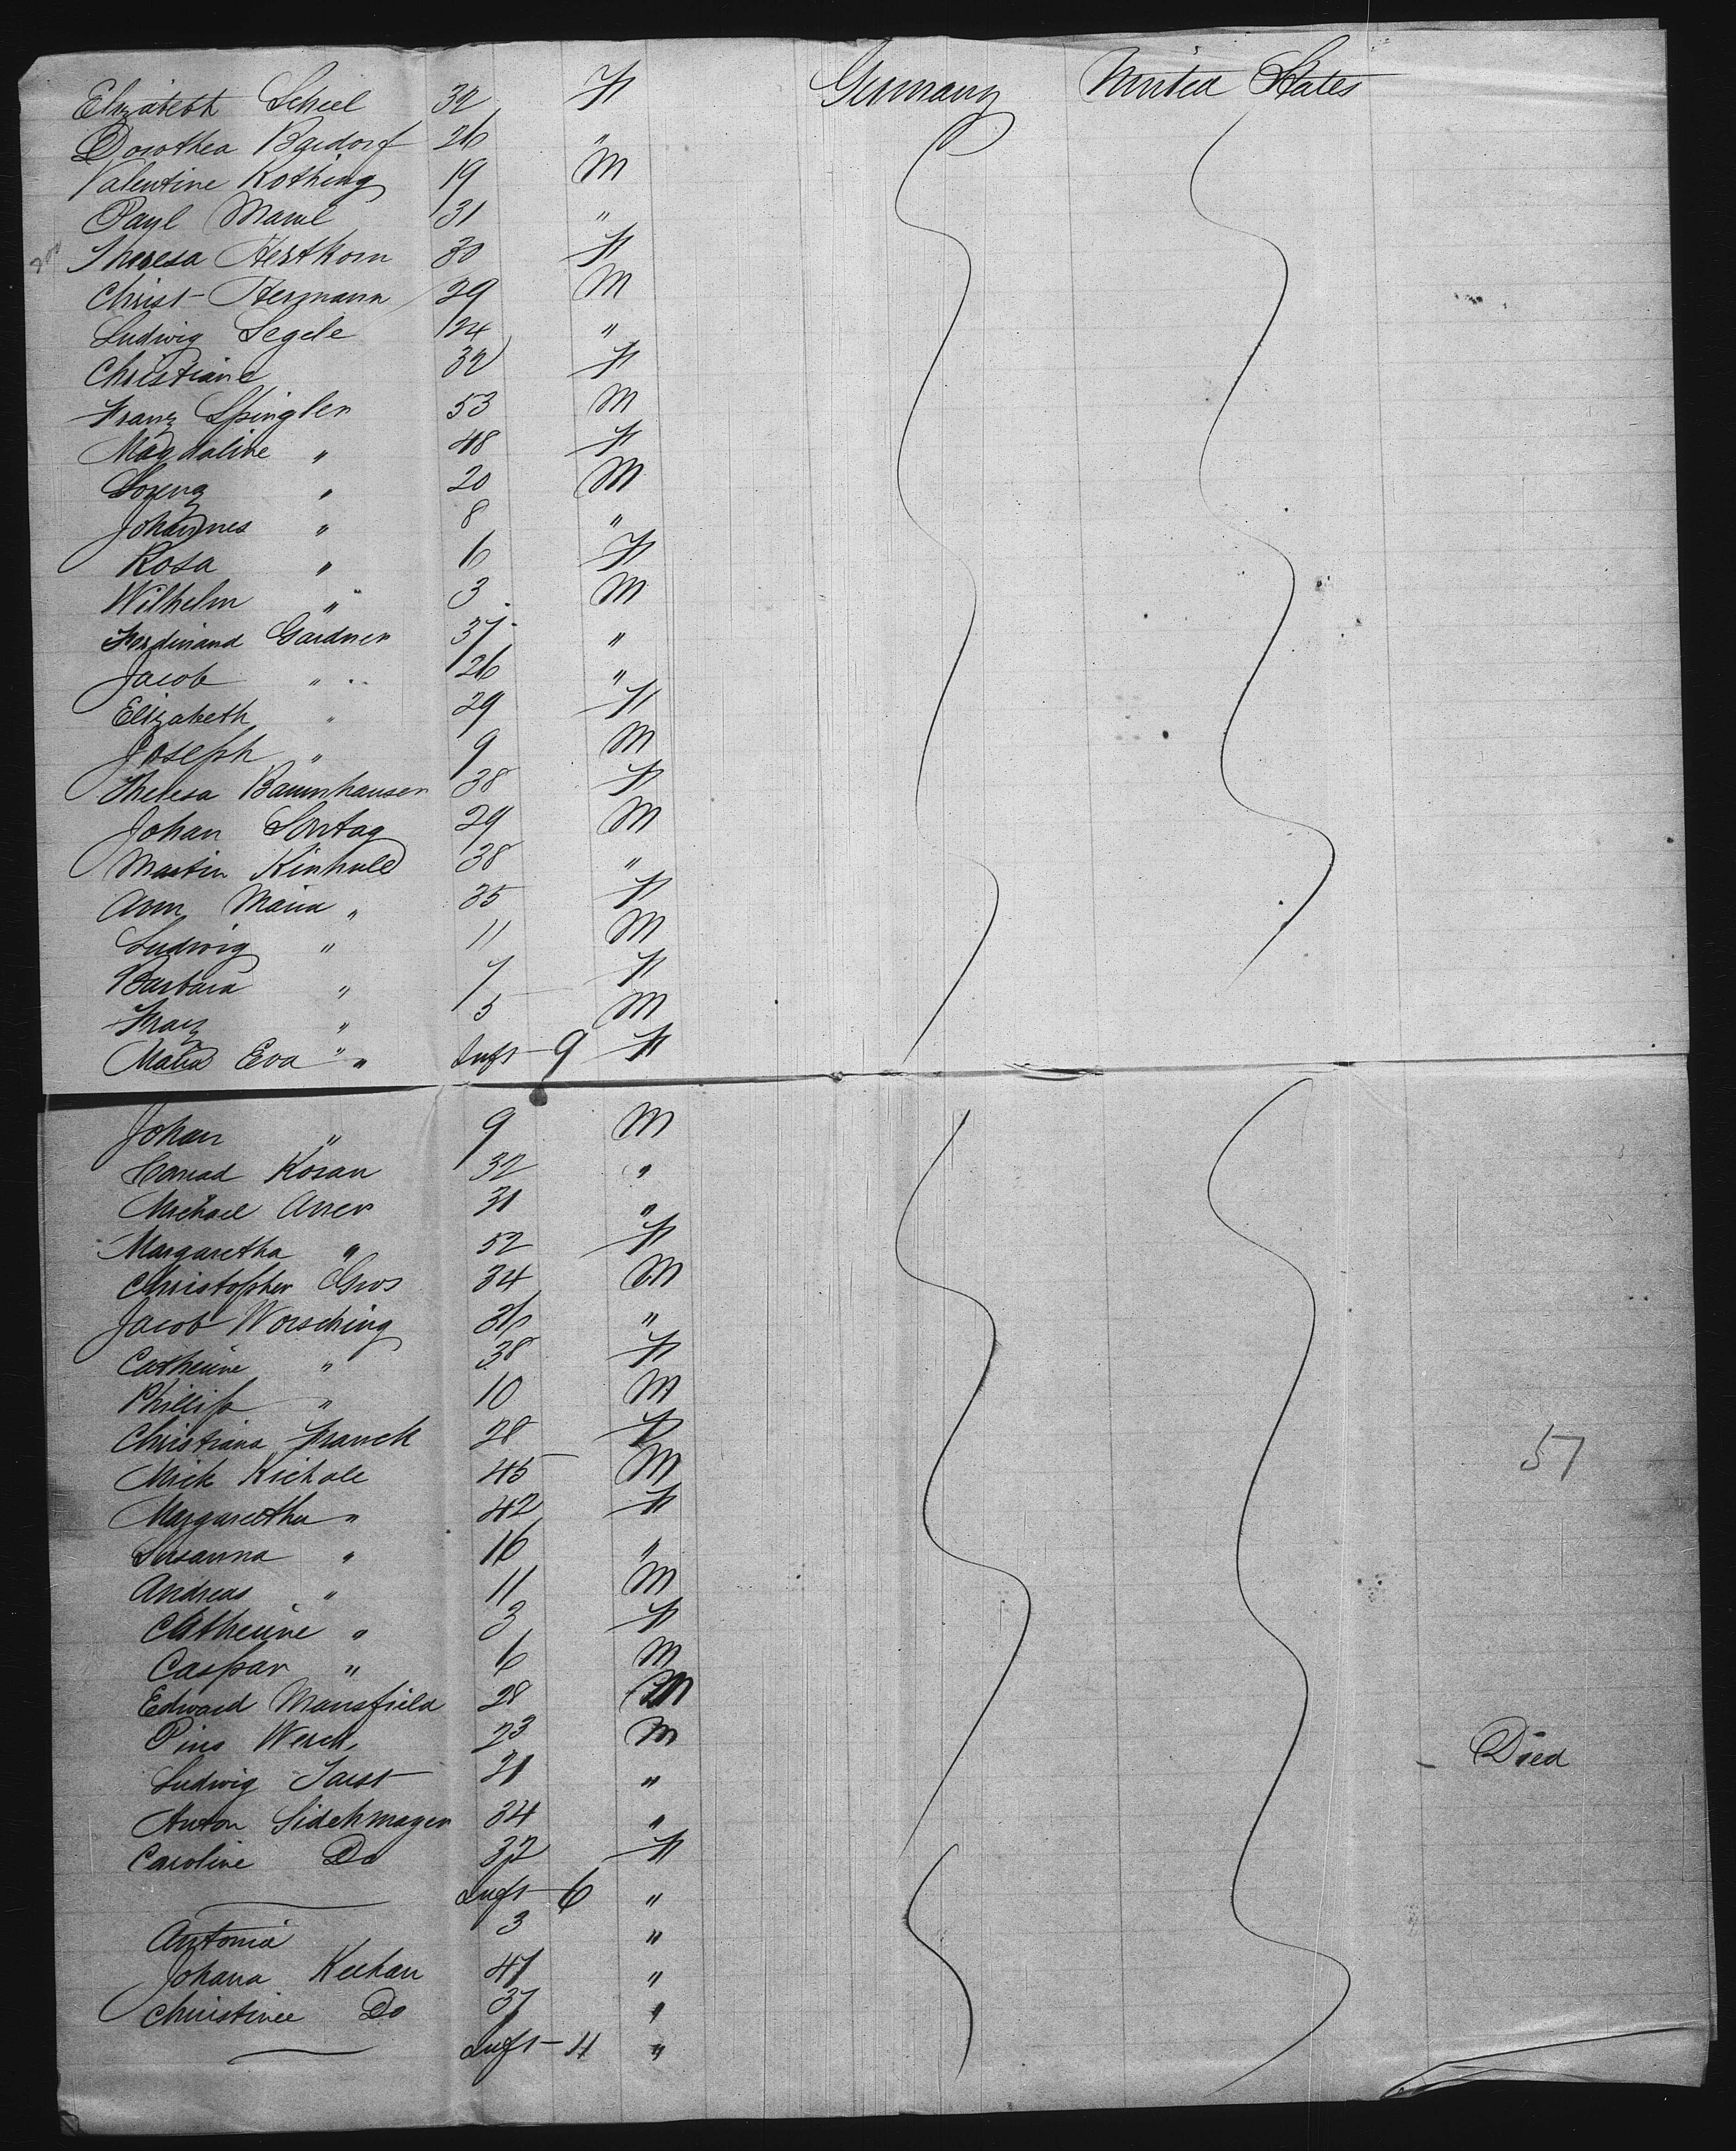 Elizabeth Scheel 32 F Germany United States
Dorothea Bardorf 26 "
Valentine Kothing 19 M
Paul 31 "
Theresa Hertkorn 30 F
Christ Hermann 29 M
Ludwig Segele 24 "
Christiane 32 F
Franz Spingler 53 M
Magdaline " 48 F
Lorenz " 20 M
Johannes " 8 "
Rosa " 6 F
Wilhelm " 3 M
Ferdinand Gardner 37 "
Jacob " 26 "
Elizabeth " 29 F
Joseph " 9 M
Theresa Baumhauser 38 F
Johan Sontag 29 M
Martin Kinhold 38 "
Ann Maria " 35 F
Ludwig " 11 M
Barbara " 7 F
Franz " 5 M
Maria Eva " " Inft 9 F
Johan " 9 M
Conrad Kosan 32 "
Michael Arrer 31 "
Margaretha " 52 F
Christopher Gros 34 M
Jacob Worsching 36 "
Catherine " 38 F
Phillip " 10 M
Christiana Franck 28 F
Mick Kichole 45 M 57
Margaretha " 42 F
Susanna " 16 "
Andreas " 11 M
Catherine " 3 F
Caspar " 6 M
Edward Mansfield 28 M
Pius Werck 23 M
Ludwig 21 " Died
Anton Sidehmager 34 "
Caroline Do 32 F
Inft 6 "
Antonia 3 "
Johana Keehan 47 "
Christinee Do 37 "
Inft 11 "